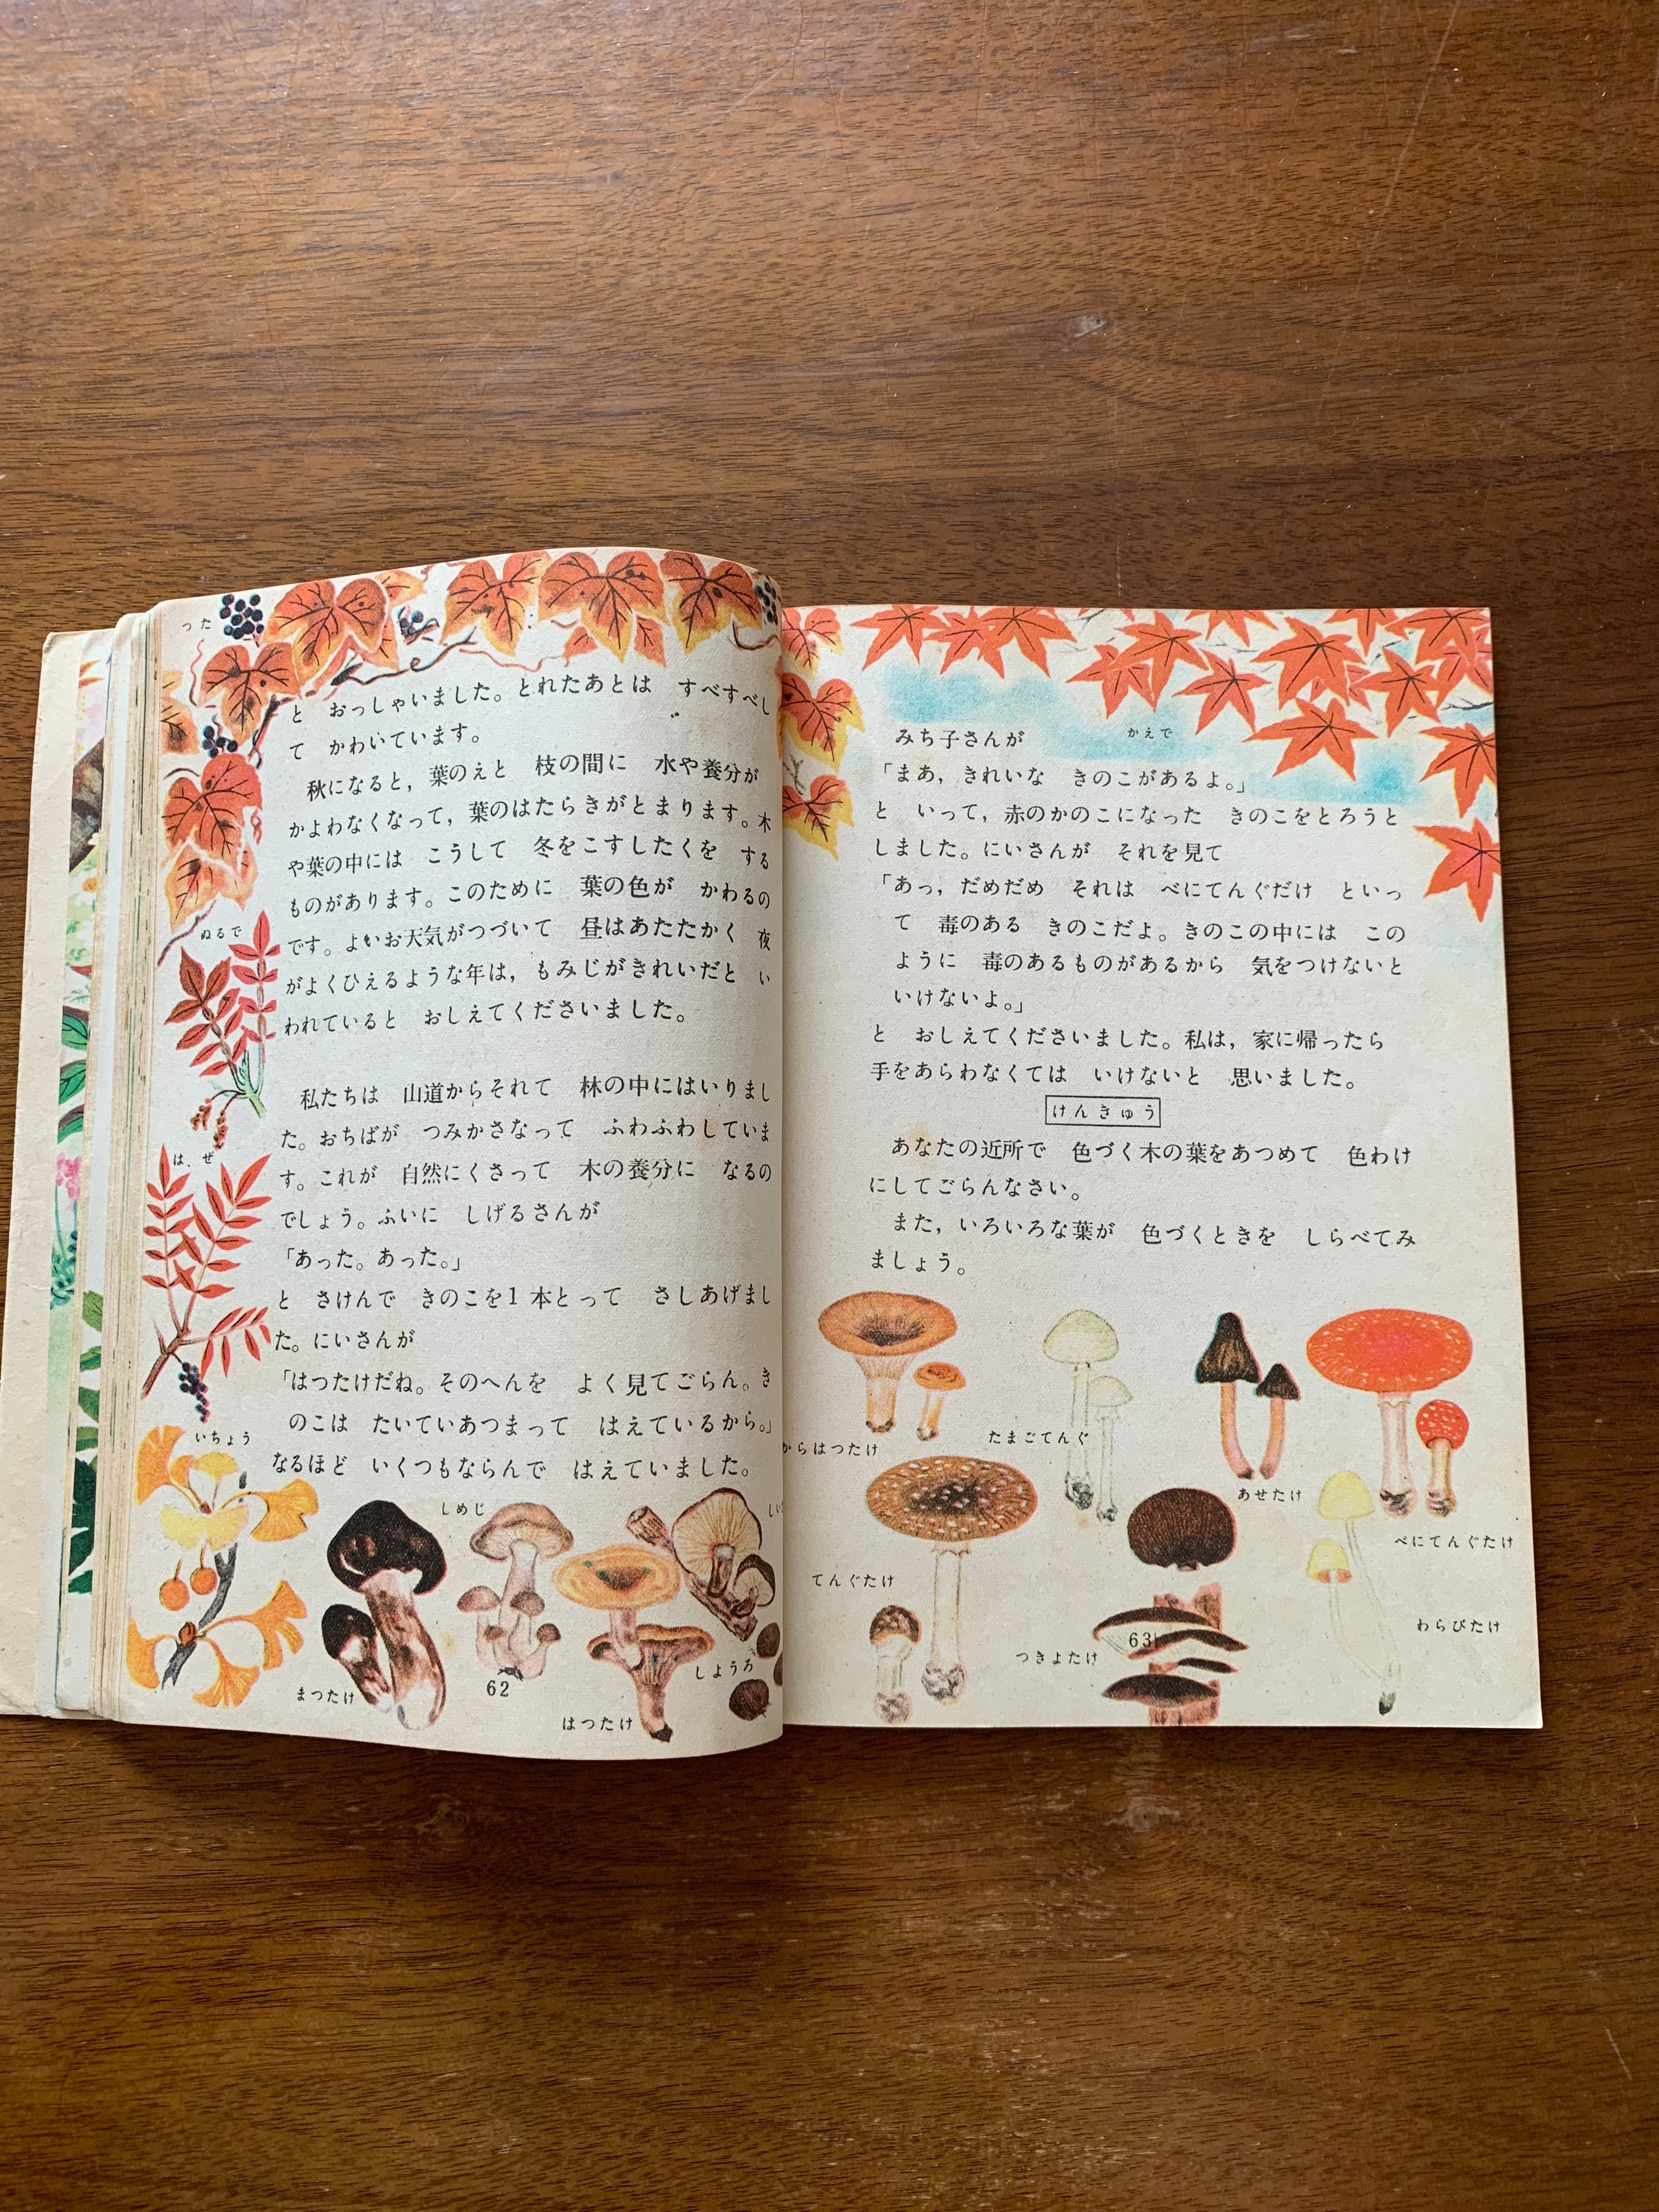 つた
と　おっしゃいました。とれたあとは　すべすべし
て　かわいています。
秋になると，葉のえと　枝の間に　水や養分が
かよわなくなって，葉のはたらきがとまります。木
や葉の中には　こうして　冬をこすしたくを　する
ものがあります。このために　葉の色が　かわるの
です。よいお天気がつづいて　昼はあたたかく　夜
がよくひえるような年は，もみじがきれいだと　い
われていると　おしえてくださいました。
ぬるで
私たちは　山道からそれて　林の中にはいりまし
た。おちばが　つみかさなって　ふわふわしていま
す。これが　自然にくさって　木の養分に　なるの
でしょう。ふいに　しげるさんが
「あった。あった。」
と　さけんで　きのこを1本とって　さしあげまし
た。にいさんが
「はつたけだね。そのへんを　よく見てごらん。き
のこは　たいていあつまって　はえているから。」
なるほど　いくつもならんで　はえていました。
はぜ
いちょう
まつたけ
しめじ
はつたけ
しようろ
62
かえで
みち子さんが
「まあ，きれいな　きのこがあるよ。」
と　いって，赤のかのこになった　きのこをとろうと
しました。にいさんが　それを見て
「あっ，だめだめ　それは　べにてんぐだけ　といっ
て　毒のある　きのこだよ。きのこの中には　この
ように　毒のあるものがあるから　気をつけないと
いけないよ。」
と　おしえてくださいました。私は，家に帰ったら
手をあらわなくては　いけないと　思いました。
けんきゅう
あなたの近所で　色づく木の葉をあつめて　色わけ
にしてごらんなさい。
また，いろいろな葉が　色づくときを　しらべてみ
ましょう。
からはつたけ
たまごてんぐ
あせたけ
べにてんぐたけ
てんぐたけ
つきよたけ
わらびたけ
63